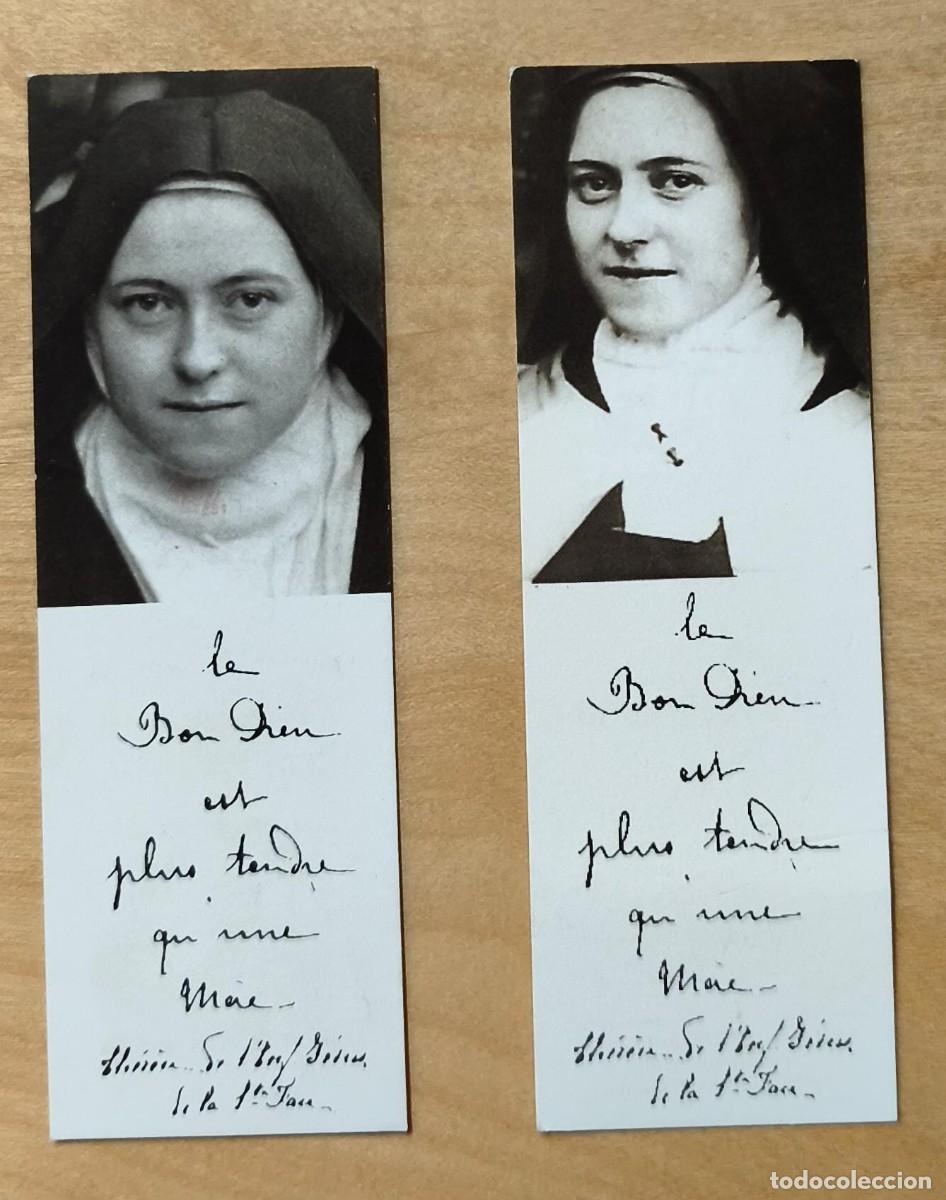 le
Bon Dieu
est
plus tendre
qu'une
Mère
Thérèse de l'Enf Jésus
de la Ste Face
le
Bon Dieu
est
plus tendre
qu'une
Mère
Thérèse de l'Enf Jésus
de la Ste Face
todocoleccion